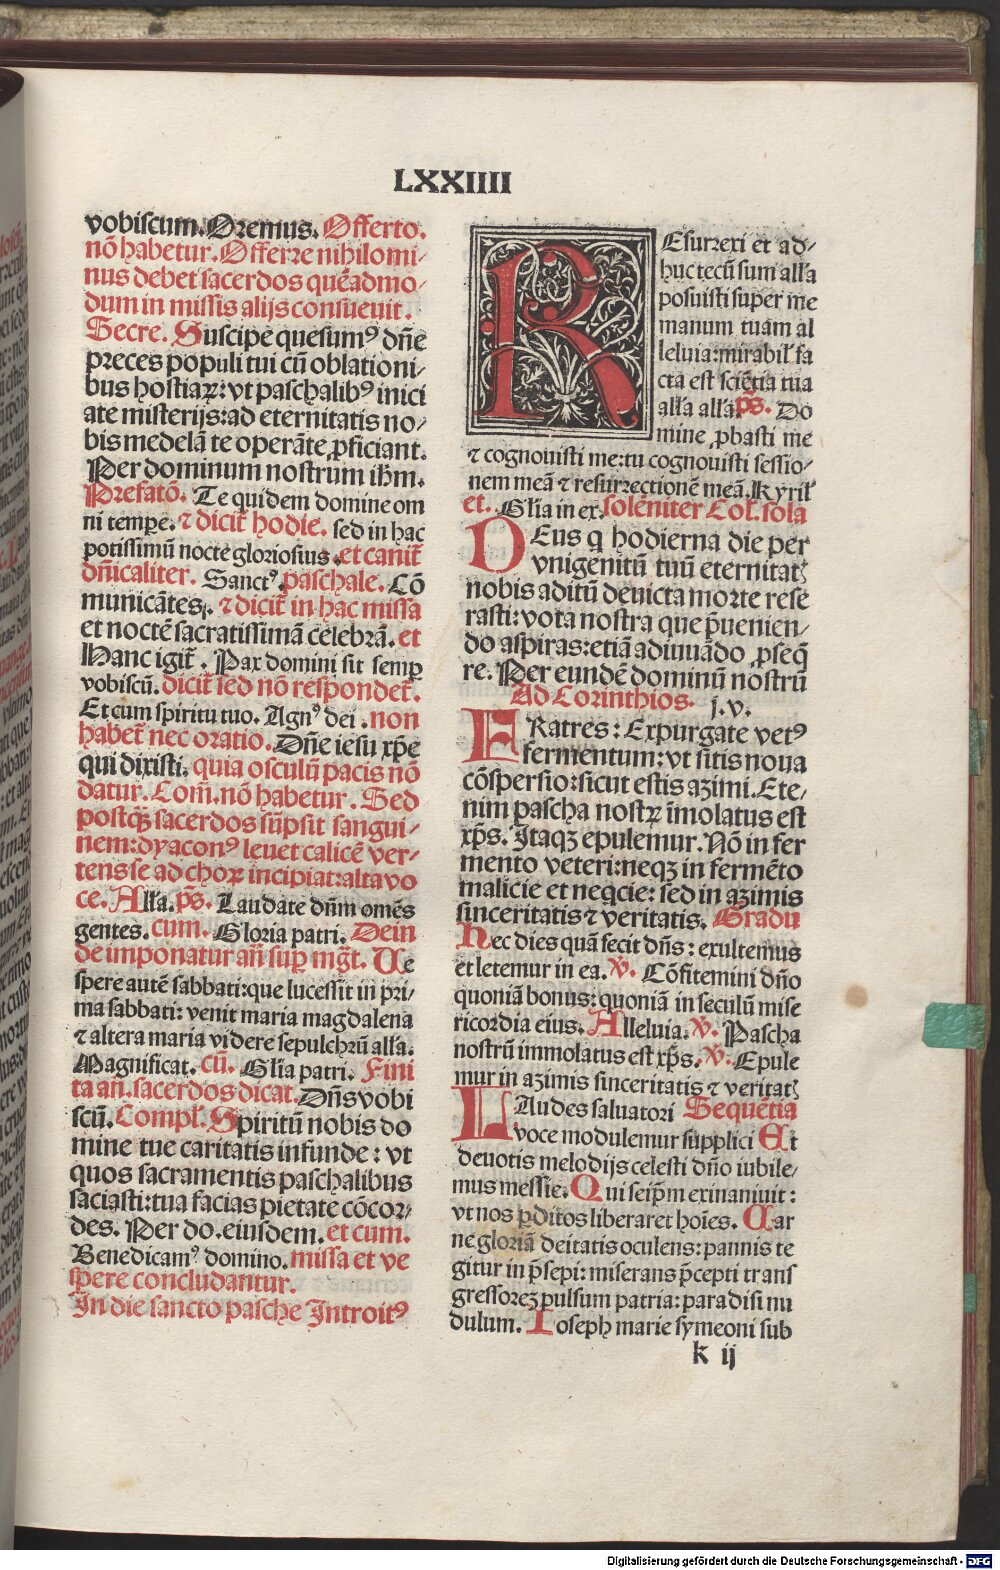 LXXIIII
vobiscum. Oremus. Offerto.
nõ habetur. Offerre nihilomi-
nus debet sacerdos quẽadmo-
dum in missis alijs consueuit.
Secre. Suscipe quesumꝰ dñe
preces populi tui cũ oblationi-
bus hostiaꝝ: vt paschalibꝰ inici
ate misterijs: ad eternitatis no-
bis medelã te operãte ꝓficiant.
Per dominum nostrum ihm.
Prefatõ. Te quidem domine om
ni tempe. ⁊ dicit̃ hodie. sed in hac
potissimũ nocte gloriosius. et canit̃
dñicaliter. Sanctꝰ. paschale. Cõ
municãtes. ⁊ dicit̃ in hac missa
et noctẽ sacratissimã celebrã. et
Hanc igit̃. Pax domini sit semꝑ
vobiscũ. dicit̃ sed nõ respondet̃.
Et cum spiritu tuo. Agnꝰ dei. non
habet̃ nec oratio. Dñe iesu xp̃e
qui dixisti. quia osculũ pacis nõ
datur. Com̃. nõ habetur. Sed
postq̃ꝫ sacerdos sũpsit sangui-
nem: dyaconꝰ leuet calicẽ ver-
tens se ad choꝝ incipiat: alta vo
ce. Alla. ps̃. Laudate dñm omẽs
gentes. cum. Gloria patri. Dein
de imponatur añ suꝑ mg̃t. Ve
spere autẽ sabbati: que lucessit in pri-
ma sabbati: venit maria magdalena
⁊ altera maria videre sepulchrũ alla.
Magnificat. cũ. Glia patri. Fini
ta añ. sacerdos dicat. Dñs vobi
scũ. Compl. Spiritũ nobis do
mine tue caritatis infunde: vt
quos sacramentis paschalibus
saciasti: tua facias pietate cõcor-
des. Per do. eiusdem. et cum.
Benedicamꝰ domino. missa et ve
spere concludantur.
In die sancto pasche Introitꝰ
REsurrexi et ad-
huc tecũ sum alla
posuisti super me
manum tuam al
leluia: mirabil fa
cta est sciẽtia tua
alla alla. ps̃. Do
mine ꝓbasti me
⁊ cognouisti me: tu cognouisti sessio-
nem meã ⁊ resurrectionẽ meã. Kyriel
et. Glia in ex. solẽniter Col. sola
DEus q hodierna die per
vnigenitũ tuũ eternitatꝭ
nobis aditũ deuicta morte rese
rasti: vota nostra que p̃uenien-
do aspiras: etiã adiuuãdo ꝓseq̃
re. Per eundẽ dominũ nostrũ
Ad Corinthios. j. v.
FRatres: Expurgate vetꝰ
fermentum: vt sitis noua
cõspersio: sicut estis azimi. Ete-
nim pascha nostꝝ ĩmolatus est
xp̃s. Itaqꝫ epulemur. Nõ in fer
mento veteri: neqꝫ in fermẽto
malicie et neqcie: sed in azimis
sinceritatis ⁊ veritatis. Gradu
Hec dies quã fecit dñs: exultemus
et letemur in ea. ℣. Cõfitemini dño
quoniã bonus: quoniã in seculũ mise
ricordia eius. Alleluia. ℣. Pascha
nostrũ immolatus est xp̃s. ℣. Epule
mur in azimis sinceritatis ⁊ veritatꝭ
LAudes saluatori Sequẽtia
voce modulemur supplici Et
deuotis melodijs celesti dño iubile-
mus messie. Qui seip̃m exinaniuit:
vt nos ꝑditos liberaret hoĩes. Car
ne gloriã deitatis oculens: pannis te
gitur in p̃sepi: miserans p̃cepti trans
gressoreꝫ pulsum patria: paradisi nu
dulum. Ioseph marie symeoni sub
k ij
Digitalisierung gefördert durch die Deutsche Forschungsgemeinschaft - DFG